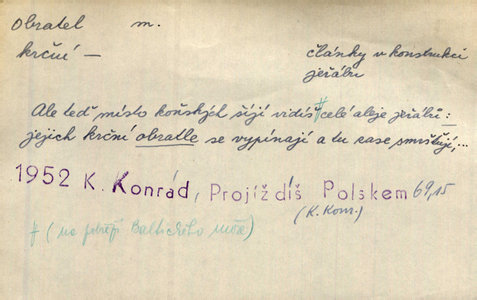 Obratel m.
krční —
články v konstrukci
jeřábu
Ale teď místo koňských šíjí vidíš ‡ celé aleje jeřábů:
jejich krční obratle se vypínají a tu zase smršťují,...
1952 K. Konrád, Projíždíš Polskem 69,15
(K. Konr.)
‡ (na pobřeží Baltického moře)